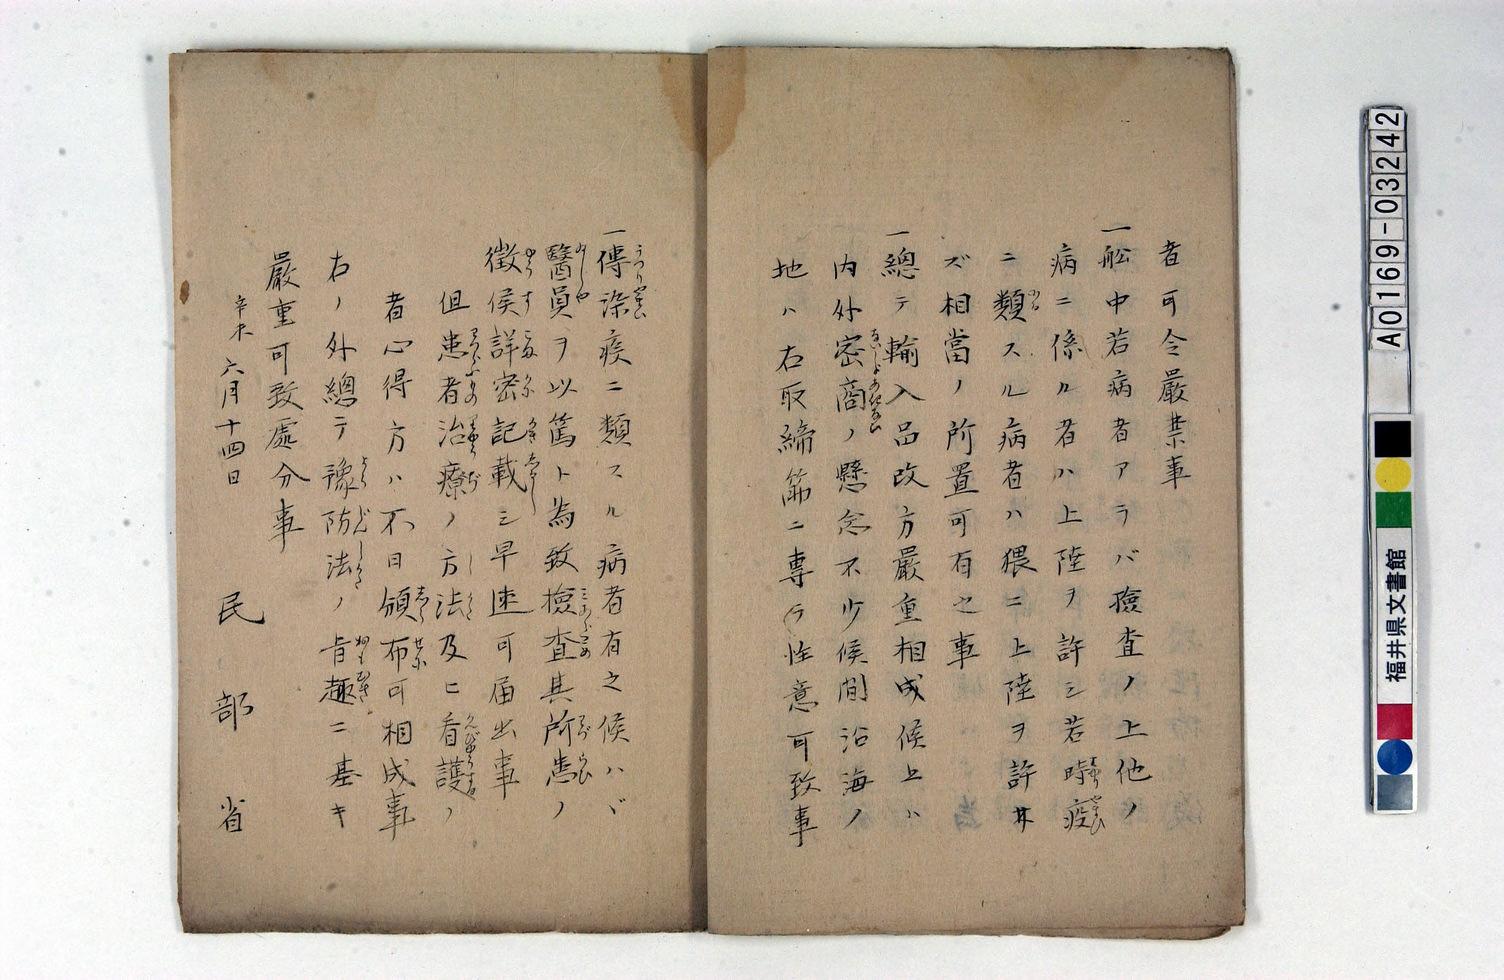 者可令嚴禁事
一舩中若病者アラバ撿査ノ上他ノ
病ニ係ル者ハ上陸ヲ許シ若時疫
ニ類スル病者ハ猥ニ上陸ヲ許サ
ズ相當ノ所置可有之事
一總テ輸入品改方嚴重相成候上ハ
内外密商ノ懸念不少候間沿海ノ
地ハ右取締筋ニ専ラ注意可致事
一傳染疾ニ類スル病者有之候ハヾ
醫員ヲ以篤ト為致撿査其所患ノ
徴候詳密記載シ早速可届出事
但患者治療ノ方法及ヒ看護ノ
者心得方ハ不日頒布可相成事
右ノ外總テ豫防法ノ旨趣ニ基キ
嚴重可致處分事
辛未六月十四日
民部省
A0169-03242
福井県文書館